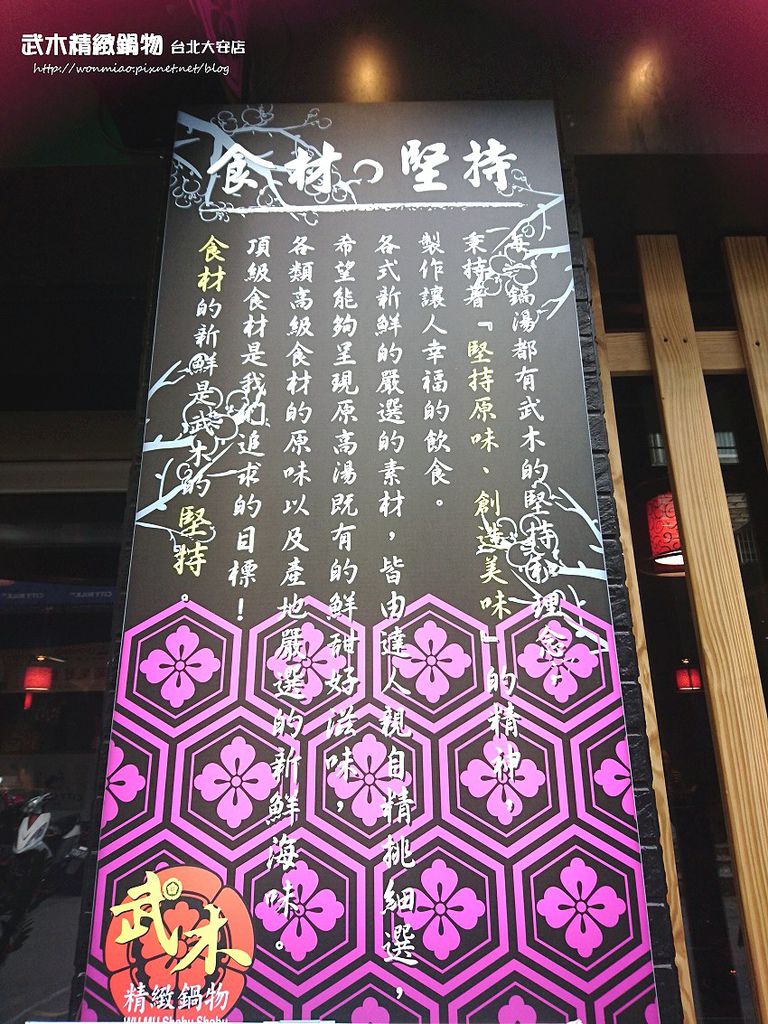 武木精緻鍋物 台北大安店
http://wonmiao.pixnet.net/blog
食材の堅持
每一鍋湯都有武木的堅持和理念，
秉持著『堅持原味、創造美味』的精神，
製作讓人幸福的飲食。
各式新鮮的嚴選的素材，皆由達人親自精挑細選，
希望能夠呈現原高湯既有的鮮甜好滋味，
各類高級食材的原味以及產地嚴選的新鮮海味。
頂級食材是我們追求的目標！
食材的新鮮是武木的堅持。
武木
精緻鍋物
WU MU Shabu Shabu